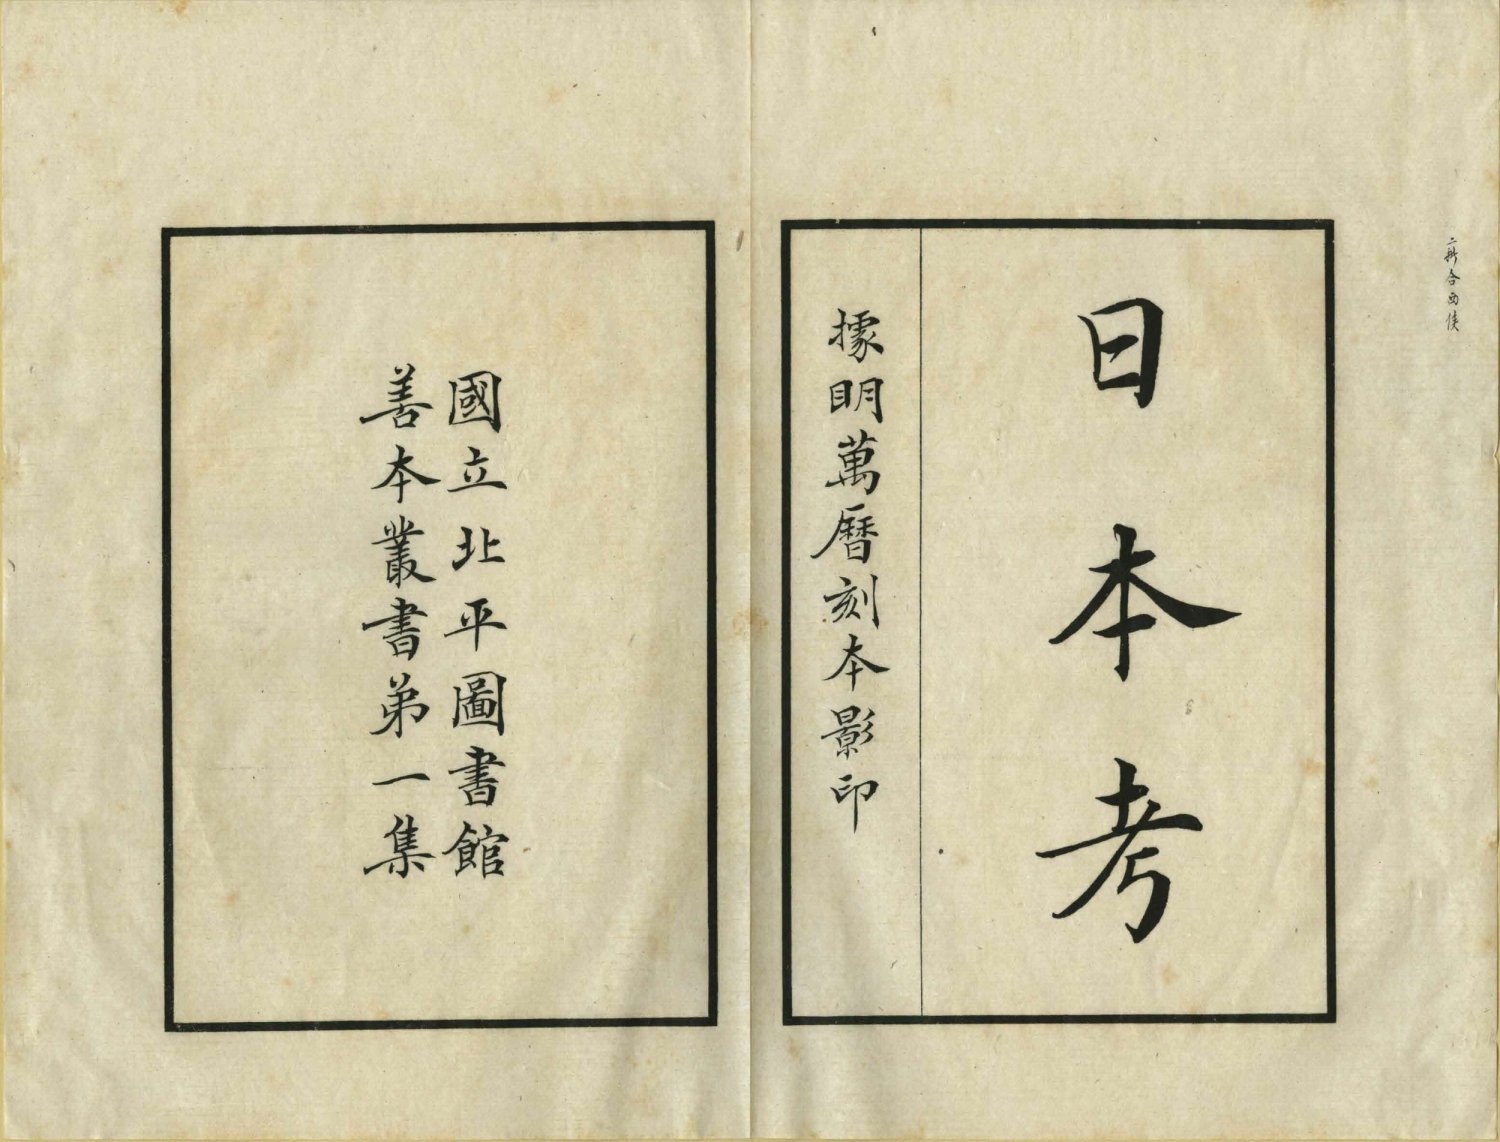 日本考
據明萬曆刻本影印
國立北平圖書館
善本叢書第一集